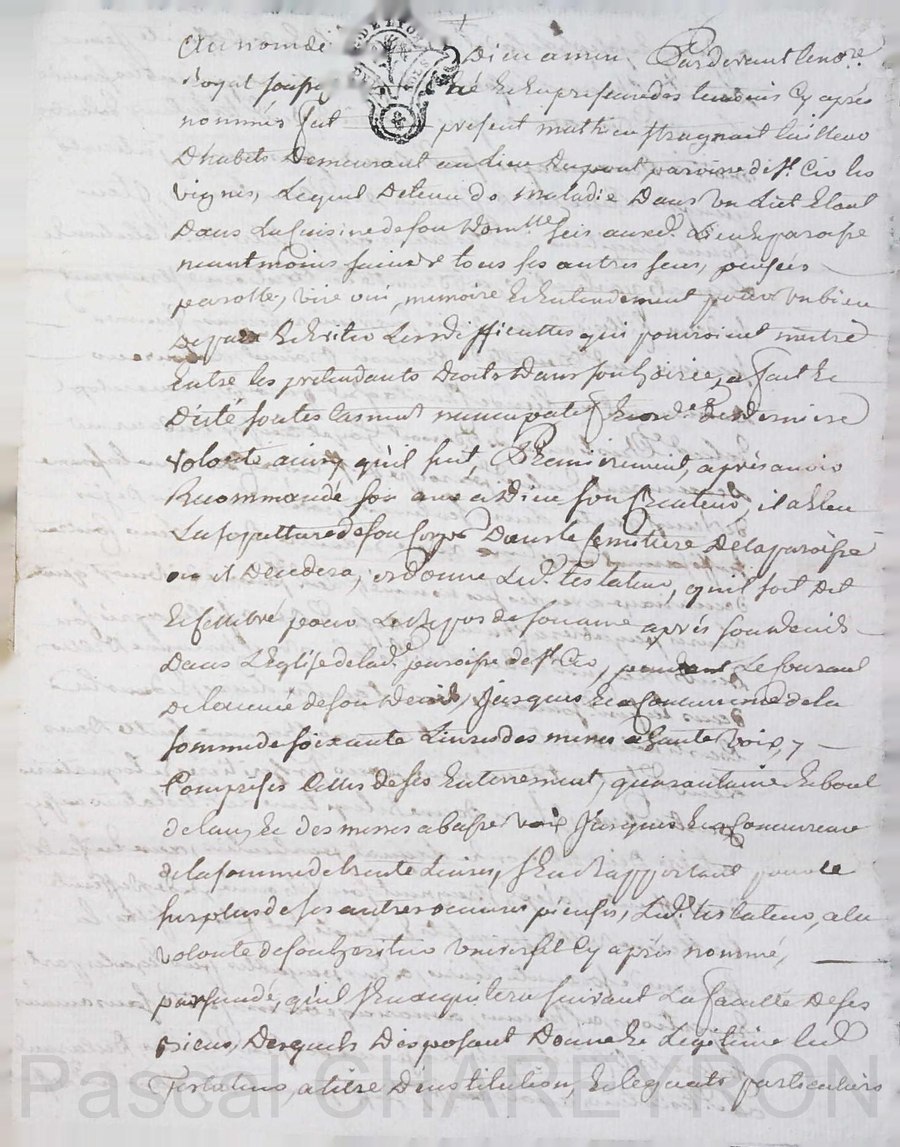 Au nom de Dieu amen Pardevant le no.re
royal soussig né et en presence des temoins cy aprés
nommés fut present mathieu tailleur
Dhabits Demeurant au Lieu Dupont paroisse de s.t Cir les
vignes, Lequel Detenu de maladie Dans un Lict Etant
Dans La Cuisine de son Dom.lle scis aud. Lieu et paroisse
neantmoins saine de tous ses autres sens, pensées
parolle, vüe oui, memoire et Entendement pour un bien
de paix et Eviter Les difficultes qui pouroient naitre
Entre les prétendants Droits Dans son hoirie, a fait et
Dicté son testament nuncupatif et ord.e de Derniere
volonté ainsy qu'il suit, Premierement, aprés avoir
Recommandé son ame a Dieu son Createur, il a Eleu
La sepulture de son Corps Dans le Cemetiere De la paroisse
ou il Decedera, ordonne Led. testateur, qu'il soit Dit
Et Cellebré pour Le Repos de son ame aprés son deces
Dans L'Eglise de lad.e paroisse de s.t Cir, pendant Le Courant
de l'année de son Decés, Jusques a Concurrance de la
somme de soixante Livres des messes a haute voix, y
Comprises Celles de ses Enterrement, quarantaine et bout
de l'an, Et des messes a basse voix Jusques a Concurrance
de la somme de trente Livres, s'En Rapportant pour le
surplus de ses autres oeuvres pieuses, Led. testateur, a la
volonté de son heritier universel Cy aprés nommé,
persuadé, qu'il s'En acquitera suivant La faculté De ses
biens, Desquels Disposant Donne Et Legitime led.
Testateur, a titre D'institution, et legats particuliers
Pascal CHAREYRON